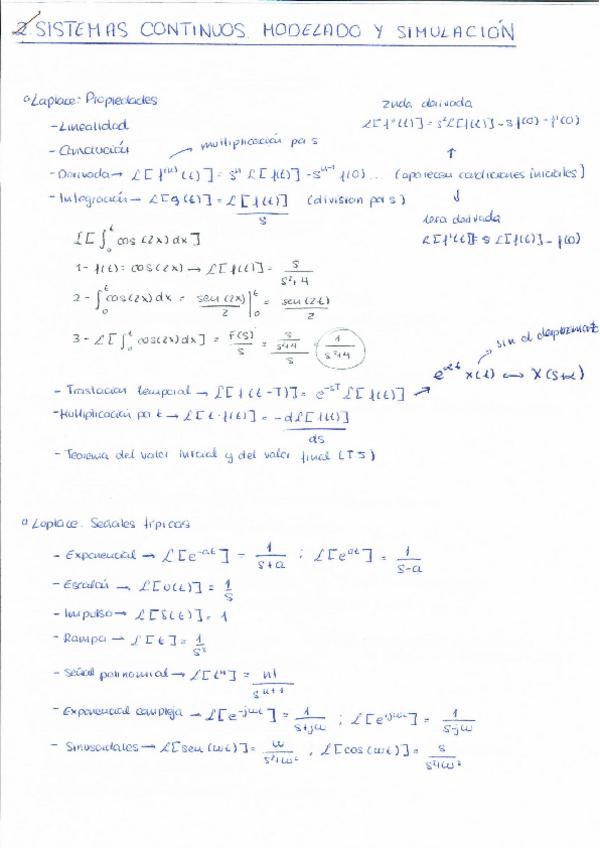 2. SISTEMAS CONTINUOS. MODELADO Y SIMULACIÓN
Laplace: Propiedades
- Linealidad
- Convolución
multiplicación por s
- Derivada → ℒ[f⁽ⁿ⁾(t)] = sⁿ ℒ[f(t)] - sⁿ⁻¹ f(0) ... (aparecen condiciones iniciales)
2nda derivada
ℒ[f''(t)] = s² ℒ[f(t)] - s f(0) - f'(0)
1era derivada
ℒ[f'(t)] = s ℒ[f(t)] - f(0)
- Integración → ℒ[g(t)] = ℒ[f(t)] / s (division por s)
ℒ[∫₀ᵗ cos(2x)dx]
1- f(t) = cos(2x) → ℒ[f(t)] = s / s²+4
2- ∫₀ᵗ cos(2x)dx = sen(2x)/2 |₀ᵗ = sen(2t)/2
3- ℒ[∫₀ᵗ cos(2x)dx] = F(s)/s = (s/s²+4)/s = 1/s²+4
- Traslación temporal → ℒ[f(t-T)] = e⁻ˢᵀ ℒ[f(t)]
e^αt x(t) ↔ X(s+α)
- Multiplicación por t → ℒ[t·f(t)] = -dℒ[f(t)] / ds
- Teorema del valor inicial y del valor final (TS)
Laplace. Señales típicas
- Exponencial → ℒ[e^-at] = 1/s+a ; ℒ[e^at] = 1/s-a
- Escalón → ℒ[u(t)] = 1/s
- Impulso → ℒ[δ(t)] = 1
- Rampa → ℒ[t] = 1/s²
- Señal polinomial → ℒ[tⁿ] = n! / sⁿ⁺¹
- Exponencial compleja → ℒ[e^-jωt] = 1/s+jω ; ℒ[e^jωt] = 1/s-jω
- Sinusoidales → ℒ[sen(ωt)] = ω/s²+ω² , ℒ[cos(ωt)] = s/s²+ω²